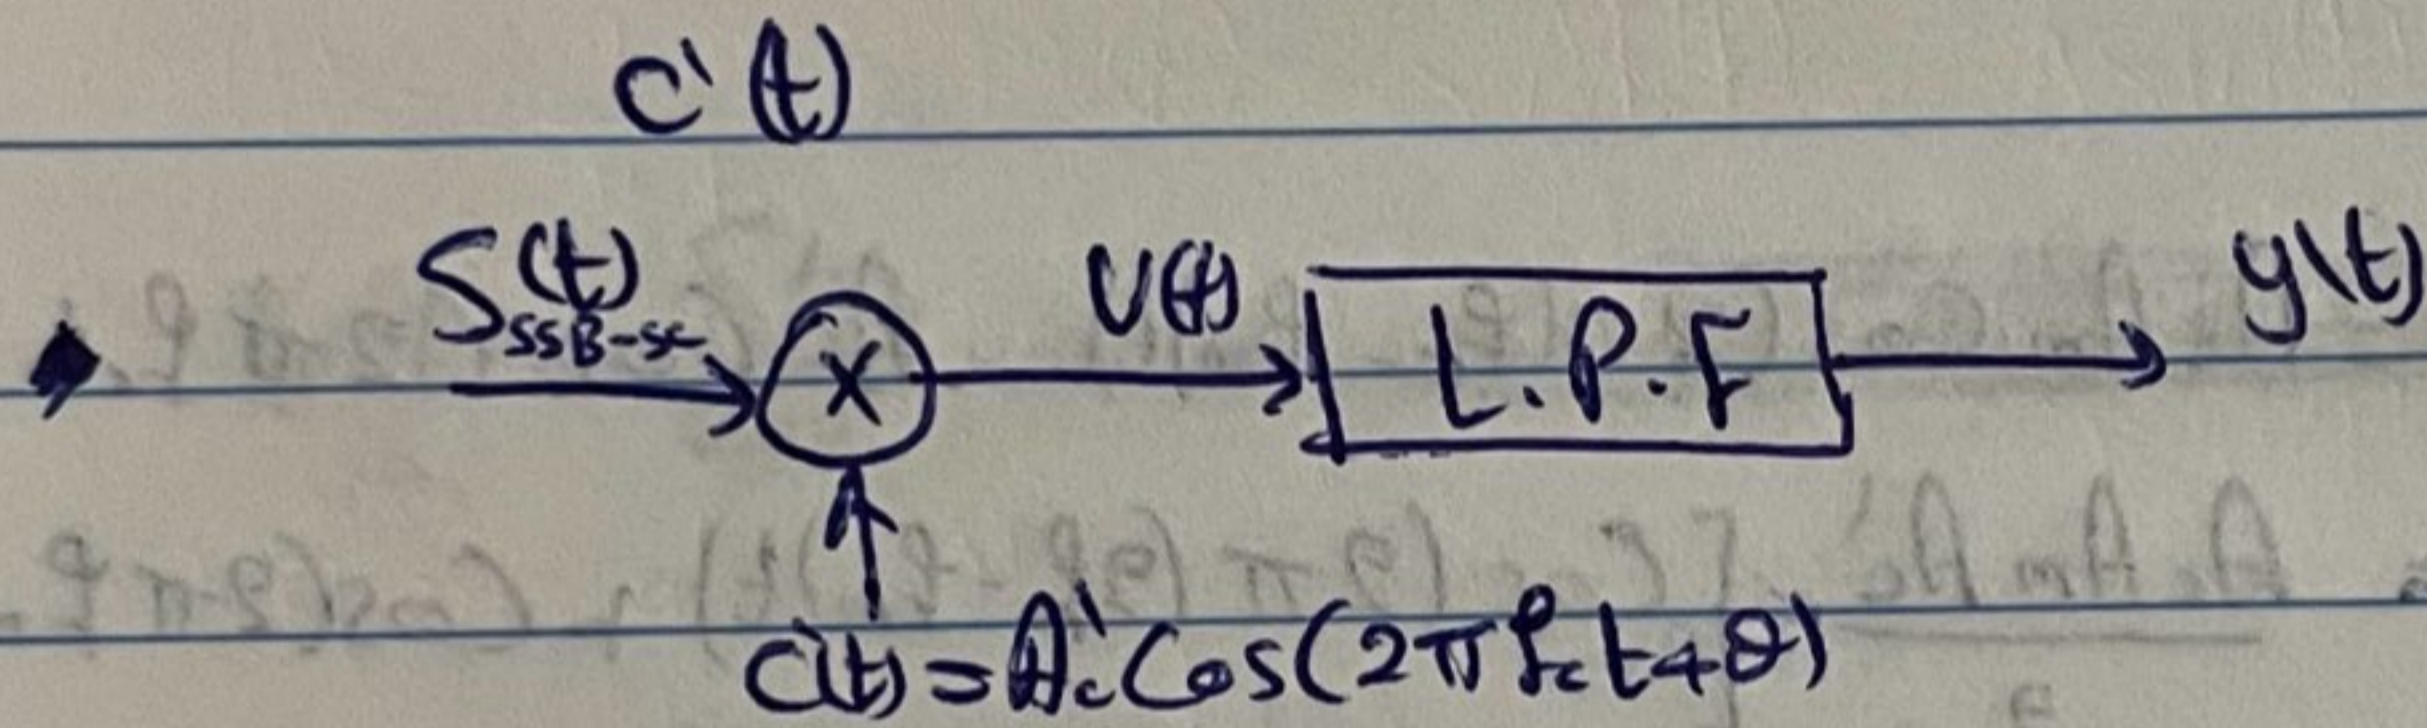 c'(t)
S(t) SSB-SC
X
v(t)
L.P.F
y(t)
c'(t) = A'c Cos(2π fc t + θ)